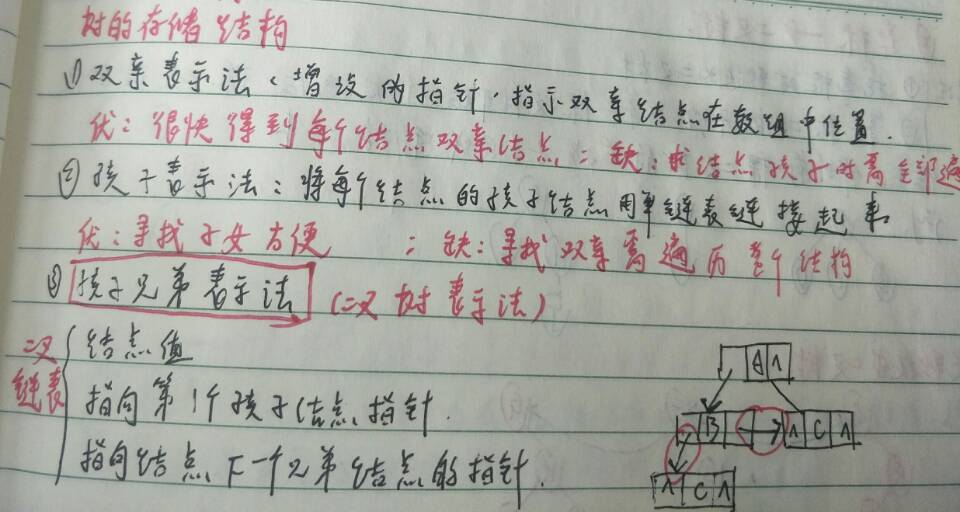 树的存储结构
① 双亲表示法、增设的指针，指示双亲结点在数组中位置.
优：很快得到每个结点双亲结点；缺：求结点孩子时需全部遍
② 孩子表示法：将每个结点的孩子结点用单链表连接起来
优：寻找子女方便；缺：寻找双亲需遍历整个结构
③ 孩子兄弟表示法 (二叉树表示法)
二叉链表
结点值
指向第1个孩子结点指针.
指向结点下一个兄弟结点的指针.
A ∧
B ∧ C ∧
∧ C ∧